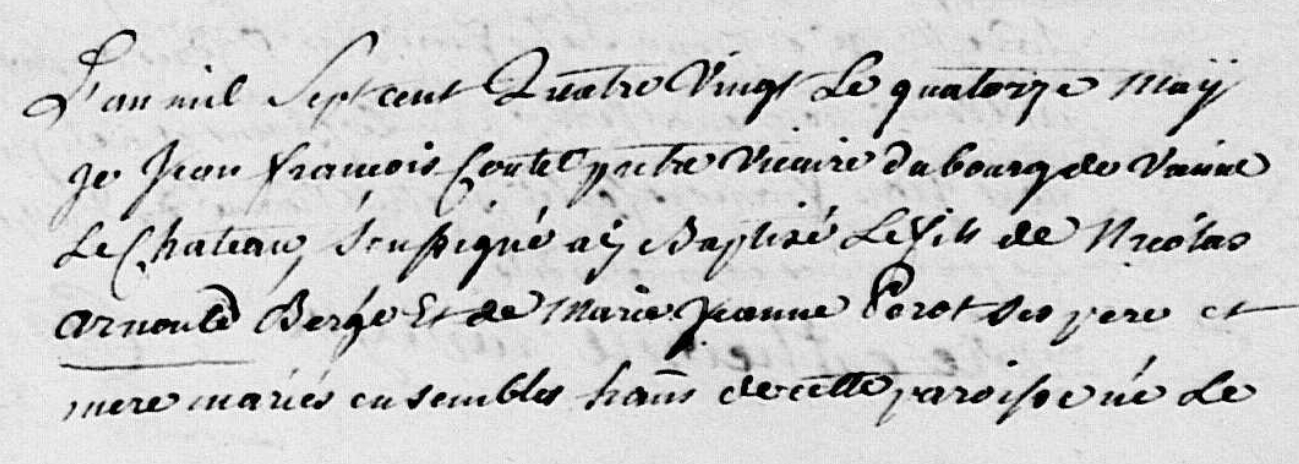 L'an mil Sept cent Quatre Vingt Le quatorze Maÿ
je Jean françois Contel pretre Vicaire du bourg de Vanne
Le Chateau, Soussigné aÿ Baptisé Le fils de Nicolas
arnould Bergé Et de Marie Jeanne Perot Ses pere et
mere mariés ensembles hans de cette paroisse né Le